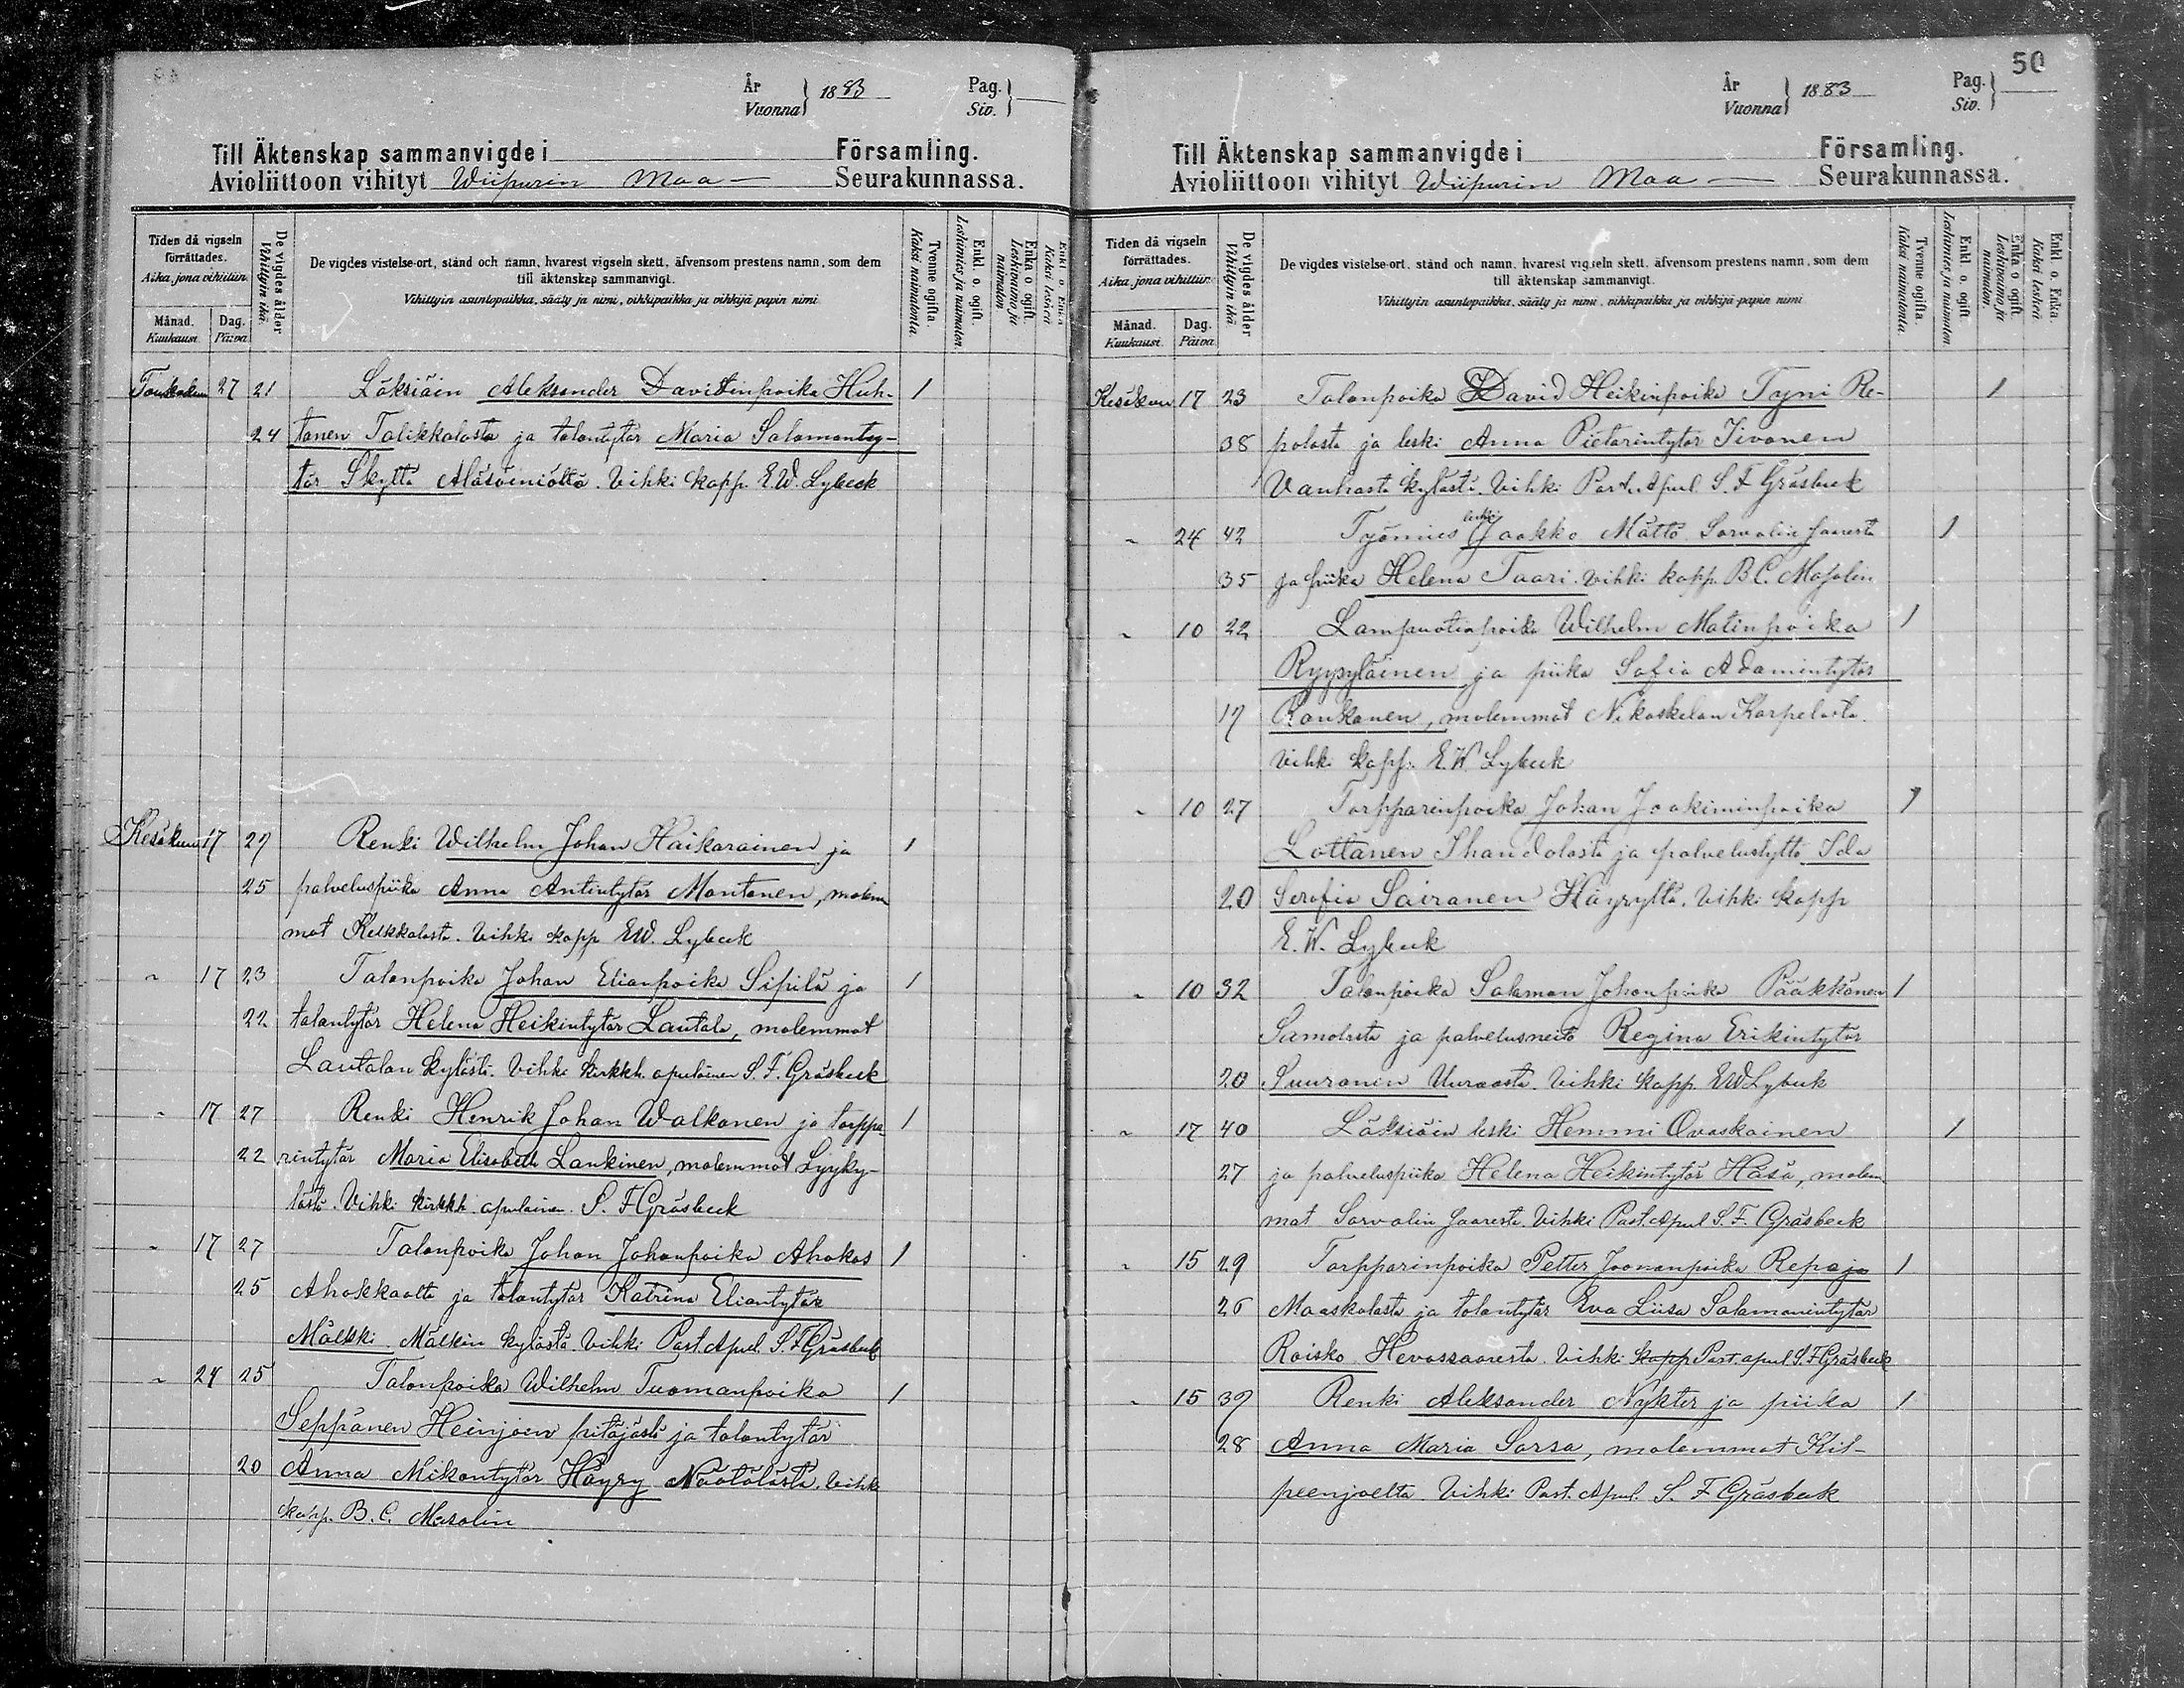 År
Vuonna } 1883 Pag.
Siv. }
Till Äktenskap sammanvigde i Församling.
Avioliittoon vihityt Wiipurin Maa — Seurakunnassa.
Tiden då vigseln förrättades.
Aika, jona vihittiin.
Månad.
Kuukausi.
Dag.
Päivä
De vigdes ålder
Vihittyin ikä.
De vigdes vistelse-ort, stånd och namn, hvarest vigseln skett, äfvensom prestens namn, som dem
till äktenskap sammanvigt.
Vihittyin asuntopaikka, sääty ja nimi, vihkipaikka ja vihkijä papin nimi
Tvenne ogifta.
Kaksi naimatonta.
Enkl. o. ogift.
Leskimies ja naimaton.
Enka o ogift.
Leskivaimo ja naimaton
Enkl o. Enka
Kaksi leskeä
Toukokuu 27 21 Läksiäin Aleksander Davidinpoika Huh- 1
24 tanen Talikkalasta ja talontytär Maria Salomontey-
tär Skyttä Alasäiniöltä. Vihki kapp. E.W. Lybeck
Kesäkuu 17 27 Renki Wilhelm Johan Haikarainen ja 1
25 palveluspiika Anna Antintytär Montonen, molem
mat Kelkkalasta. Vihki kapp E.W. Lybeck
" 17 23 Talonpoika Johan Elianpoika Sipilä ja 1
22 talontytär Helena Heikintytär Lautala, molemmat
Lautalan kylästä. Vihki kirkkh. apulainen S. F. Gräsbeck
" 17 27 Renki Henrik Johan Walkonen ja torppa- 1
22 rintytär Maria Elisabeth Lankinen, molemmat Lyyky-
lästä. Vihki kirkkh. apulainen S. F Gräsbeck
" 17 27 Talonpoika Johan Johanpoika Ahokas 1
25 Ahokkaalta ja talontytär Katrina Eliantytär
Mälkki Mälkin kylästä. Vihki Past. Apul. S. F Gräsbeck
" 24 25 Talonpoika Wilhelm Tuomanpoika 1
Seppänen Heinjoen pitäjästä ja talontytär
20 Anna Mikontytär Häyry Näätälästä. Vihki
kapp. B. C. Masolin
50
År
Vuonna } 1883 Pag.
Siv. }
Till Äktenskap sammanvigde i Församling.
Avioliittoon vihityt Wiipurin Maa — Seurakunnassa.
Tiden då vigseln förrättades.
Aika, jona vihittiin.
Månad.
Kuukausi.
Dag.
Päivä
De vigdes ålder
Vihittyin ikä.
De vigdes vistelse-ort, stånd och namn, hvarest vigseln skett, äfvensom prestens namn, som dem
till äktenskap sammanvigt.
Vihittyin asuntopaikka, sääty ja nimi, vihkipaikka ja vihkijä papin nimi
Tvenne ogifta.
Kaksi naimatonta.
Enkl. o. ogift.
Leskimies ja naimaton
Enka o ogift.
Leskivaimo ja naimaton.
Enkl o. Enka.
Kaksi leskeä
Kesäkuu 17 23 Talonpoika David Heikinpoika Tyni Re- 1
38 polasta ja leski Anna Pietarintytär Iivonen
Vanhasta kylästä. Vihki Past. Apul. S. F Gräsbeck
leski
" 24 42 Työmies Jaakko Mättö Sorvalin saaresta 1
35 ja piika Helena Tuari. Vihki kapp. B. C. Masalin
" 10 22 Lampuotinpoika Wilhelm Matinpoika 1
Ryypyläinen ja piika Sofia Adamintytär
17 Kaukonen, molemmat Nikoskelan Karpelasta.
Vihki kapp. E. W. Lybeck
" 10 27 Torpparinpoika Johan Joakiminpoika 1
Lottanen Ihandolasta ja palvelustyttö Ida
20 Serafia Sairanen Häyryltä. Vihki kapp
E. W. Lybeck
" 10 32 Talonpoika Salomon Johanpoika Pääkkönen 1
Samolasta ja palvelusneito Regina Erikintytär
20 Suuronen Uuraasta. Vihki kapp. E W Lybeck
" 17 40 Läksiäin leski Hemmi Ovaskainen 1
27 ja palveluspiika Helena Heikintytär Häsä, molem
mat Sorvalin saaresta. Vihki Past. Apul S. F. Gräsbeck
" 15 29 Torpparinpoika Petter Joonanpoika Repo ja 1
26 Maaskolasta ja talontytär Eva Liisa Salamonintytär
Roisko Hevossaaresta. Vihki kapp Past. apul. S. F Gräsbeck
" 15 37 Renki Aleksander Nykter ja piika 1
28 Anna Maria Sorsa, molemmat Kil-
peenjoelta Vihki Past. Apul. S. F Gräsbeck